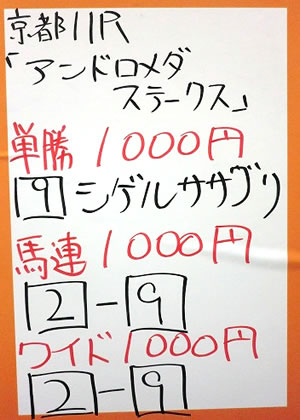 京都11R
「アンドロメダ
ステークス」
単勝1000円
9シゲルササグリ
馬連1000円
2-9
ワイド1000円
2-9